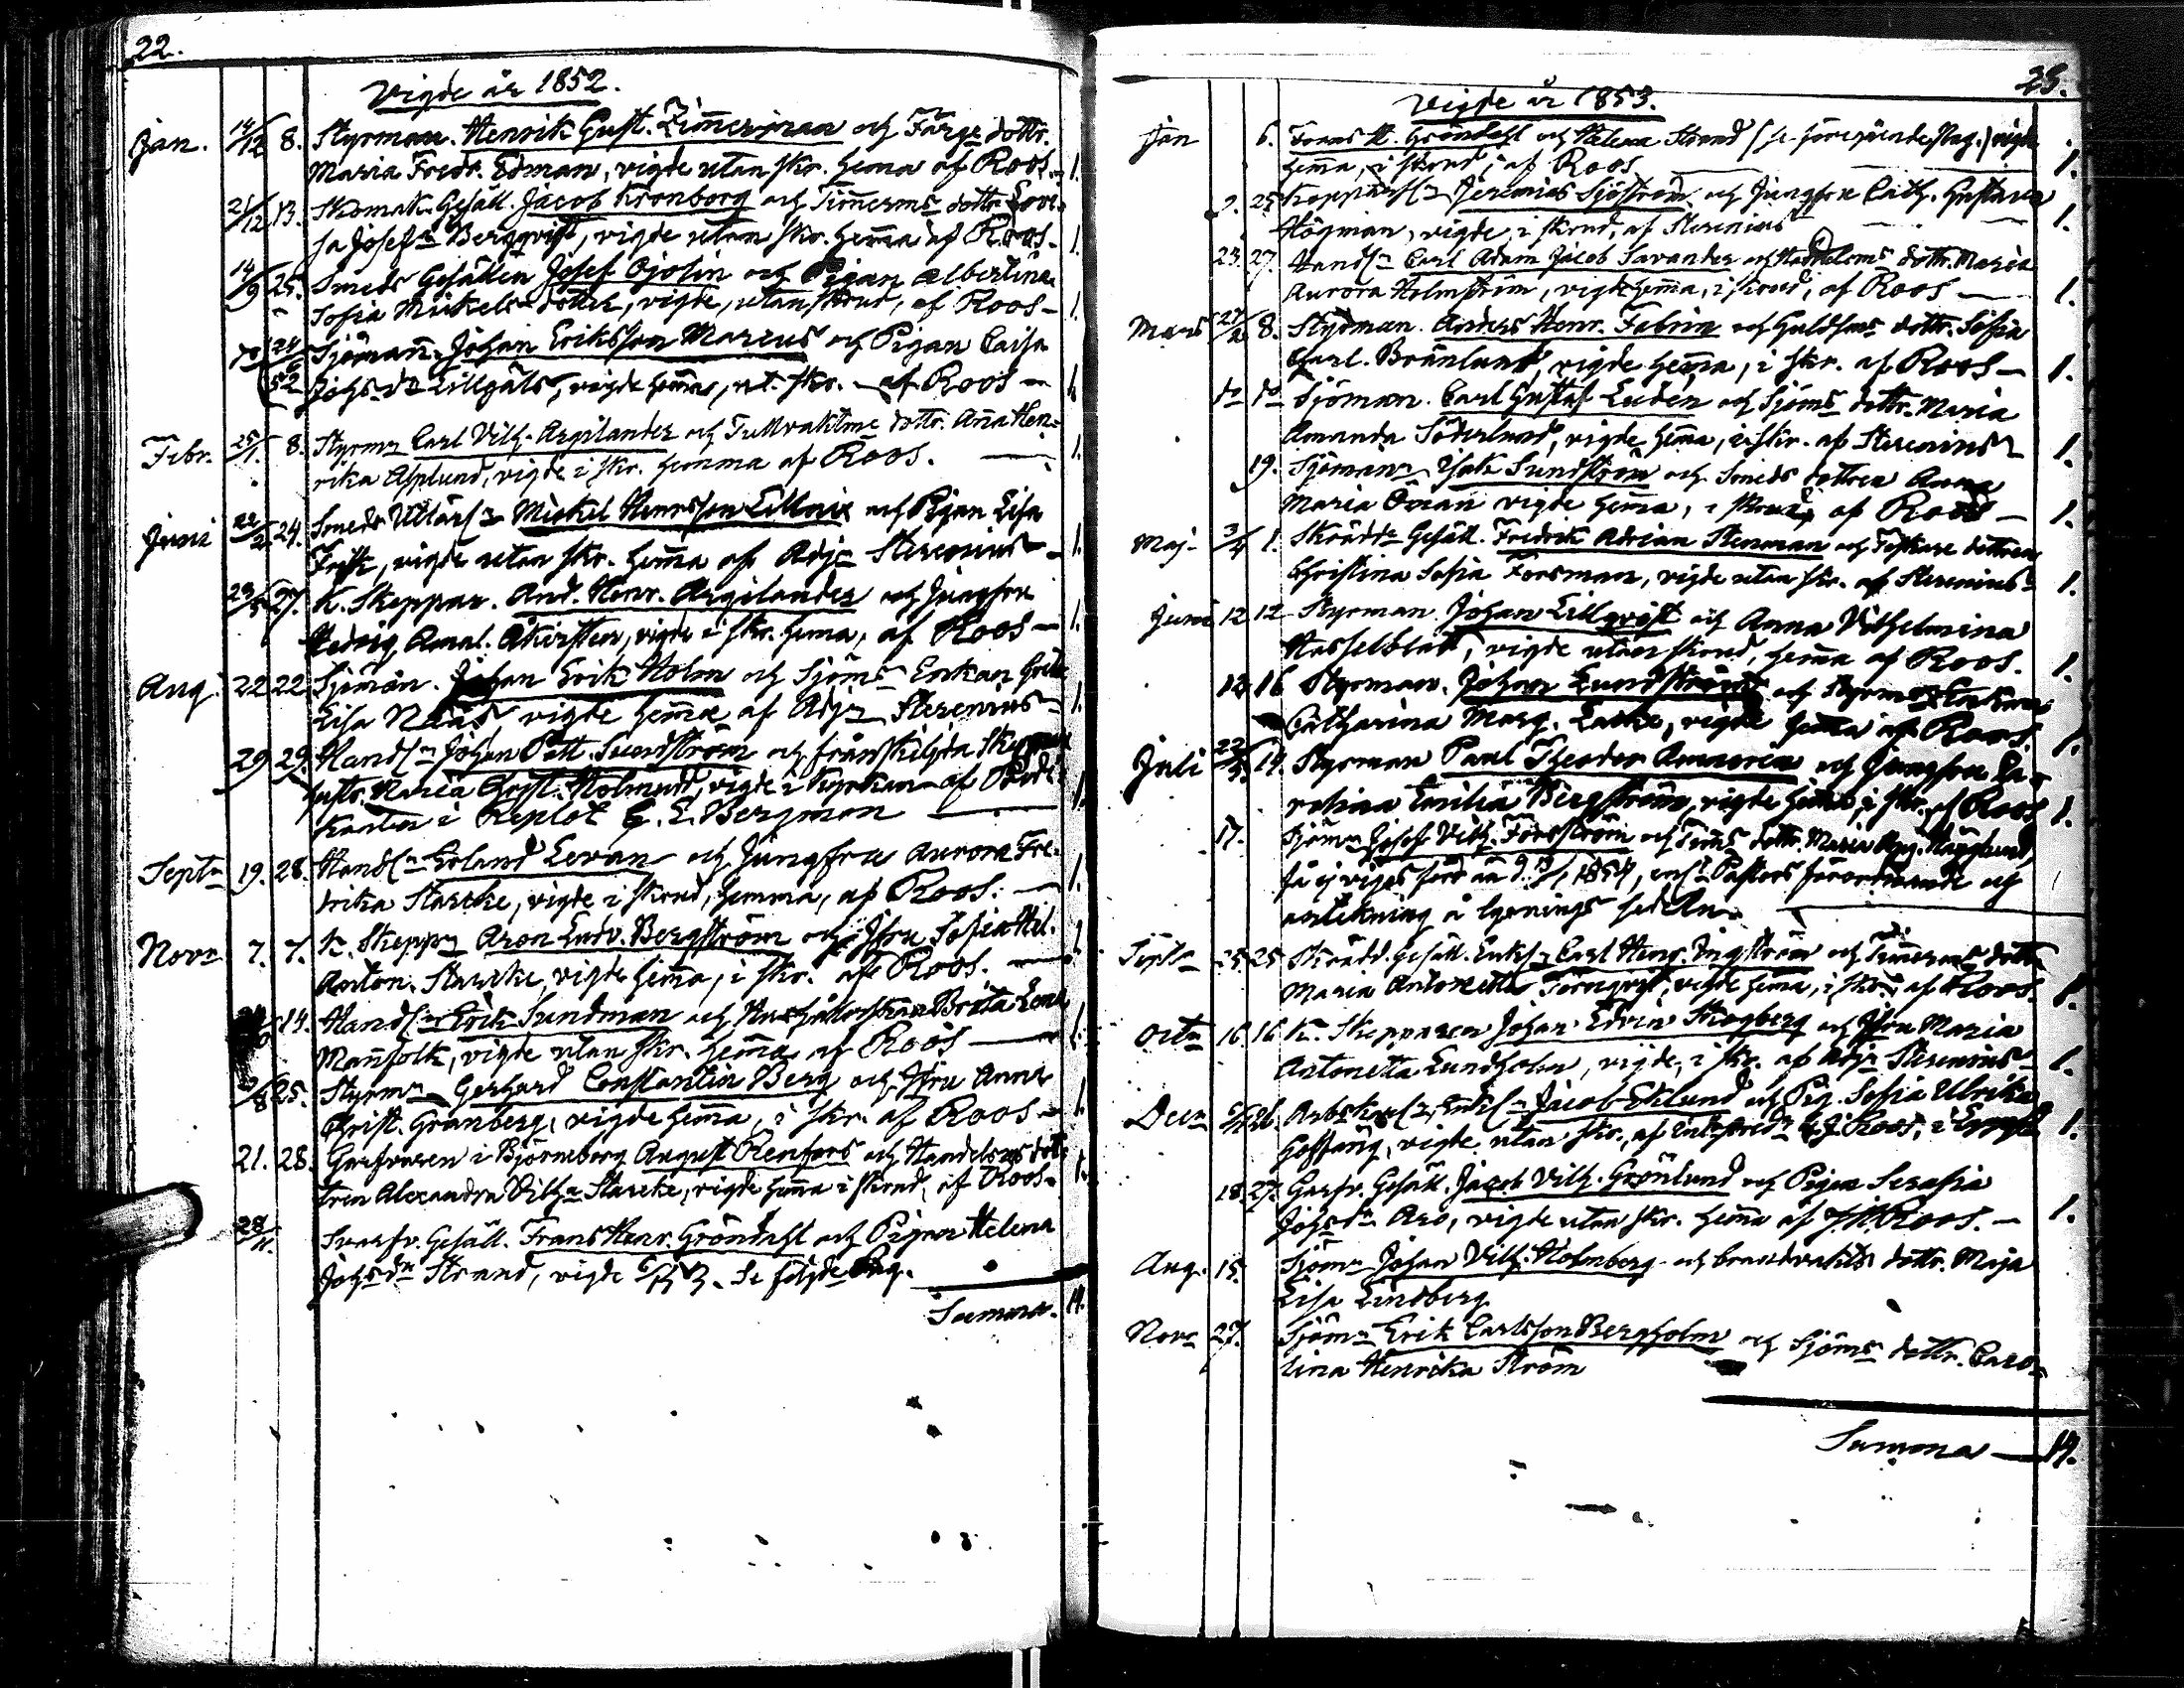 22.
Vigde år 1852.
Jan. 14/12 8. Styrman. Henrik Gust. Zim̄erman och Färge dottr.
Maria Fredr. Edman, vigde utan skr. hema af Roos. 1.
21/12 13. Skomak. Gesäll. Jacob Kronborg och Tim̄erms dottr Lovi-
sa Josefa Bergqvist, vigde utan skr. hem̄a af Roos. 1.
14/9 25. Smeds Gesällen Josef Öjolin och Pigan Albertina
Sofia Mickels dotter, vigde, utan skrud, af Roos 1.
do 24/6 52 Sjöman. Johan Eriksson Marcus och Pigan Caisa
Johs dr Lillgäls, vigde hem̄a, ut. skr. af Roos 1.
Febr. 25/1. 8. Styrmn Carl Vilh. Argilander och Tullvaktms dottr. Anna Hen-
rika Asplund, vigde i skr. hemma af Roos. 1.
Juni 22/2 24. Smeds Mickel Henrsson Lillnix och Pigan Lisa
Frisk, vigde utan skr. hem̄a af Adjn Sterenius 1.
23/5 27. K. Skeppar. And. Henr. Argilander och Jungfru
Hedvig Amal. Åkersten, vigde i skr. hema, af Roos 1.
Aug. 22 22 Sjöman. Johan Erik Holm och Sjöms Enkan Greta
Lisa Nääs vigde hem̄a af Adjn Sterenius 1.
29 29. Handln Johan Pett. Sundström och frånskilda Skeppar
hustr. Maria Christ. Holmlund, vigde i kyrkan af
i Replot G. E. Bergman 1.
Septr 19. 28. Handln Erland Levan och Jungfru Aurora Fre-
drika Starcke, vigde i skrud, hemma, af Roos. 1.
Novr 7. 7. K. Skeppn Aron Ludv. Bergström och Jfru Sofia Hel.
Anton. Starcke, vigde hem̄a, i skr. af Roos. 1.
14. Handln Erik Sundman och Hushållerskan Brita Lena
Manfolk, vigde utan skr. hem̄a af Roos 1.
/8 25. Styrmn Gerhard Constantin Berg och Jfru Anna
Christ. Granberg, vigde hem̄a, i skr. af Roos 1.
21. 28. Garfvaren i Björneborg August Renfors och Handelsms dot-
tren Alexandra Vilha Starcke, vigde hem̄a i skrud, af Roos 1.
28/11. Svarfv. Gesäll. Frans Henr. Gröndahl och Pigan Helena
Johs dr Strand, vigde 6/1 53. Se följde Pag.
Summa. 14.
23.
Vigde år 1853.
Jan 6. Frans H. Gröndahl och Helena Strand (se föregående Pag.) vigde
hem̄a, i skrud, af Roos 1.
2. 25 Jeremias Sjöström och Jungfru Cath. Gustava
Högman, vigde, i skrud, af Sterenius 1.
23. 27. Handln Carl Adam Jacob Savander och Handelsms dottr. Maria
Aurora Holmström, vigde hem̄a, i skrud, af Roos 1.
Mars 27/2 8. Styrman. Anders Henr. Fabrin och Guldsms dottr. Sofia
Carl. Bränlund, vigde hem̄a, i skr. af Roos 1.
do do Sjöman. Carl Gustaf Ludén och Sjöms dottr. Maria
Amanda Söderlund, vigde hem̄a, i skr. af Sterenius 1.
19. Sjöman Isak Sundström och Smeds dottren Anna
Maria Öman vigde hem̄a, i skrud, af Roos 1.
Maj. 3/4 1. Skrädd. Gesäll. Fredrik Adrian Stenman och Fiskare dottren
Christina Sofia Forsman, vigde utan skr. af Sterenius 1.
Juni 12 12 Styrman Johan Lillqvist och Anna Vilhelmina
Hasselblatt, vigde utan skrud, hem̄a af Roos. 1.
12 16 Styrman. Johan Lundström och Styrms Enkan
Catharina Marg. Lacke, vigde hem̄a af Roos. 1.
Juli 22/5 14. Styrman Paul Theodor Amnorin och Jungfru Ca-
rolina Emilia Bergström, vigde hem̄a, i skr. af Roos 1.
17. Sjömn Josef Vilh. Forsström och Tim̄s dottr. Maria Häggland,
få ej viges förr än d. 19/1 1854, enlt Pastors förordnande och
anteckning å lysnings sedeln.
Septr 25 25 Skrädd. Gesäll. Enkln Carl Henr. Ingström och Tim̄erms dottr
Maria Antonetta Törnqvist, vigde hem̄a, i skrd. af Roos. 1.
Octr 16 16 K. Skepparen Johan Edvin Skogberg och Jfru Maria
Antonetta Lundholm, vigde, i skr. af Adjn Sterenius 1.
Decr 26 Arbskarln, Enkln Jacob Eklund och Pig. Sofia Ulrika
vigde utan skr. af J. Roos, i 1.
18 27. Garfv. Gesäll. Jacob Vilh. Grönlund och Pigan Serafia
Johsdr Aro, vigde utan skr. hem̄a af Roos. 1.
Aug. 15. Sjömn Johan Vilh. Holmberg och brandvakts dottr. Maja
Lisa Lindberg
Novr 27. Sjömn Erik Carlsson Bergholm och Sjöms dottr. Caro-
lina Henrika Ström
Summa 14.